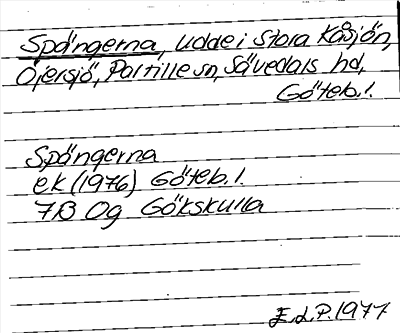 Spångerna, udde i Stora Kåsjön,
Öjersjö, Partille sn, Sävedals hd,
Göteb. l.
Spångerna
ek (1976) Göteb. l.
7B 0g Gökskulla
E.d.P. 1977